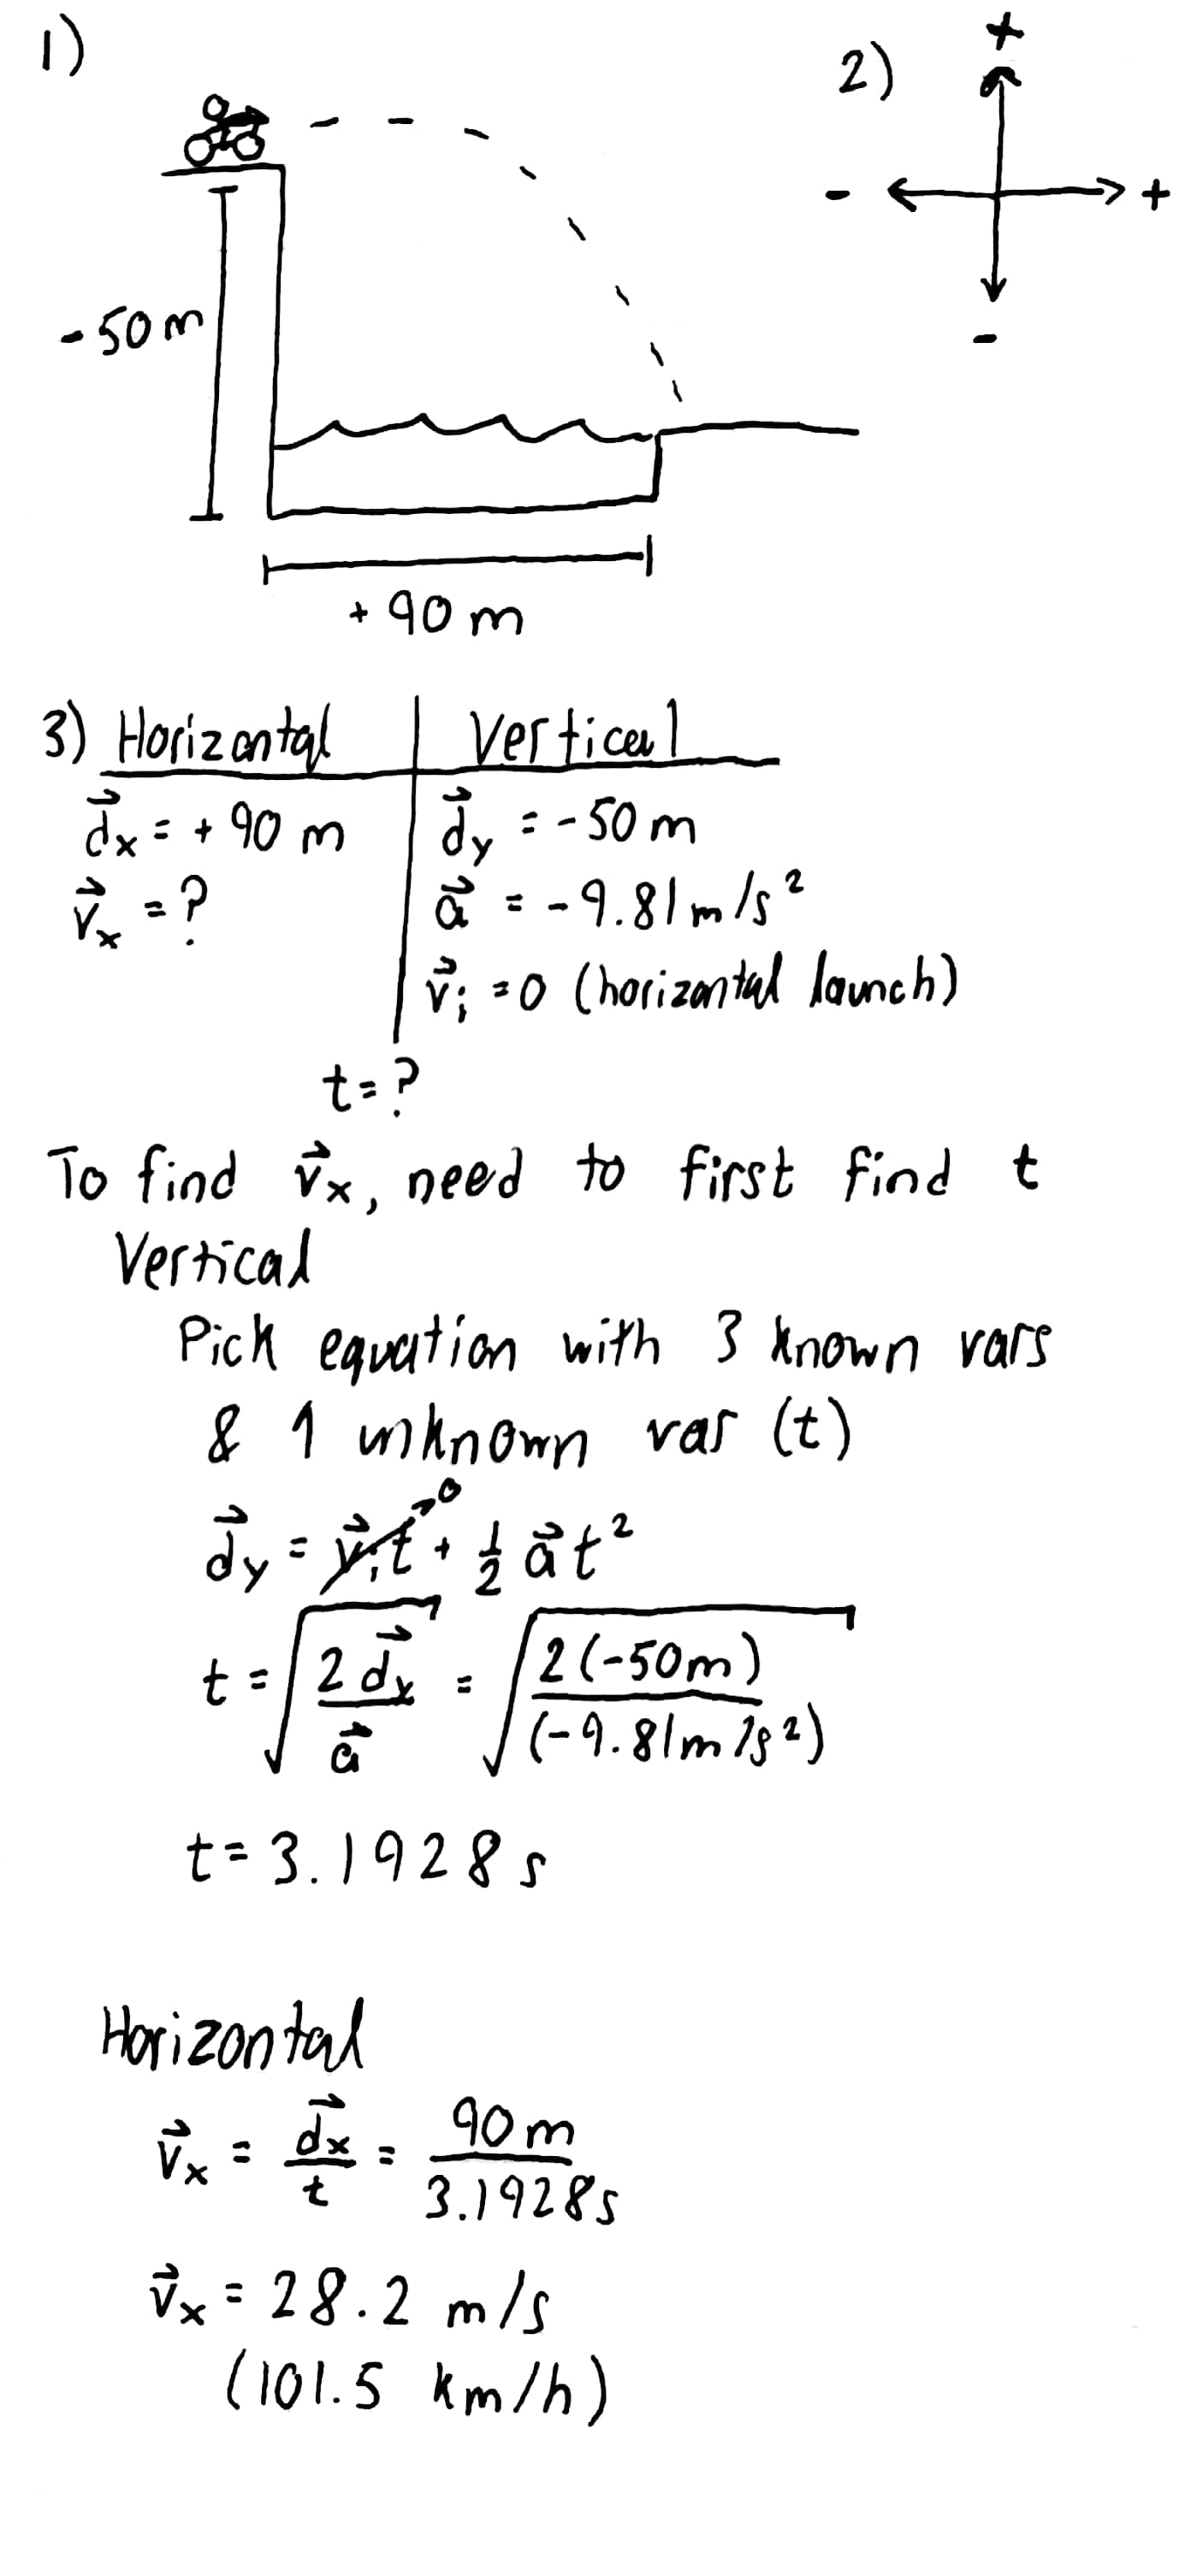 1)
2)
+
- +
-
-50 m
+ 90 m
3) Horizontal | Vertical
d⃗x = + 90 m | d⃗y = -50 m
v⃗x = ? | a⃗ = -9.81 m/s²
v⃗i = 0 (horizontal launch)
t = ?
To find v⃗x, need to first find t
Vertical
Pick equation with 3 known vars
& 1 unknown var (t)
d⃗y = v⃗it→0 + 1/2 a⃗t²
t = √(2d⃗y/a⃗) = √(2(-50m)/(-9.81m/s²))
t = 3.1928 s
Horizontal
v⃗x = d⃗x/t = 90m/3.1928s
v⃗x = 28.2 m/s
(101.5 km/h)